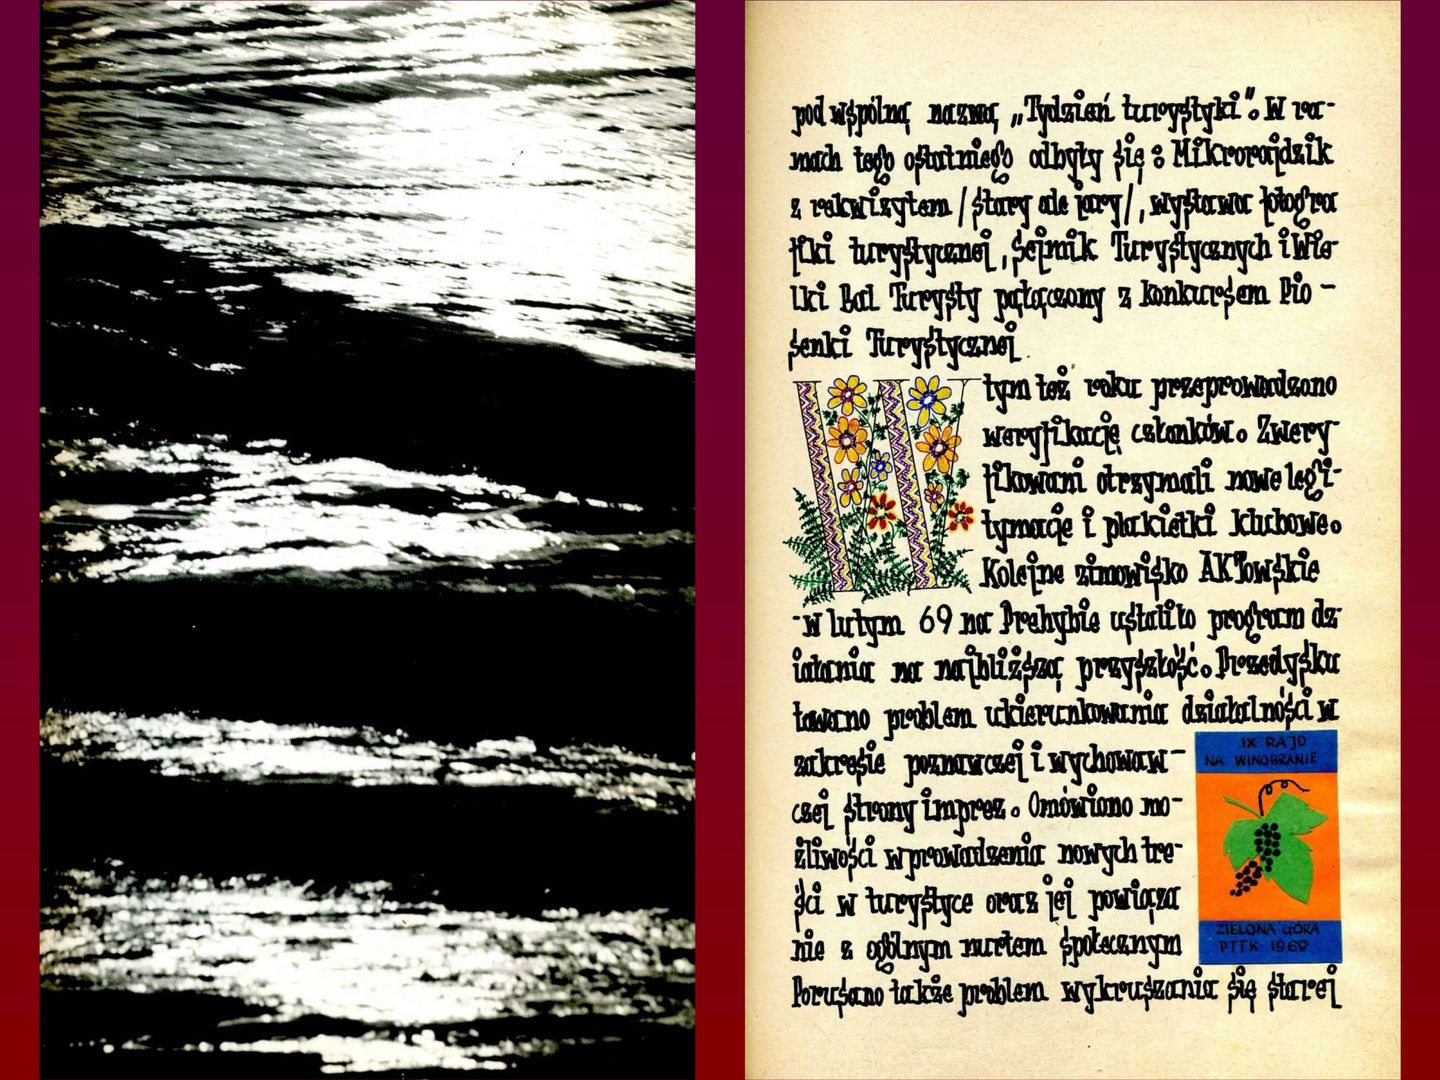 pod wspólną nazwą „Tydzień turystyki”. W ra-
mach tego ostatniego odbyły się: Mikrorajdzik
z rekwizytem /stary ale jary/, wystawa fotogra
fiki turystycznej, Sejmik Turystycznych i Wie-
lki Bal Turysty połączony z konkursem Pio-
senki Turystycznej
W tym też roku przeprowadzono
weryfikację członków. Zwery-
fikowani otrzymali nowe legi-
tymacje i plakietki klubowe.
Kolejne zimowisko AKT'owskie
-w lutym 69 na Prehybie ustaliło program dz-
iałania na najbliższą przyszłość. Przedysku
towano problem ukierunkowania działalności w
zakresie poznawczej i wychowaw-
czej strony imprez. Omówiono mo-
żliwości wprowadzenia nowych tre-
ści w turystyce oraz jej powiąza
nie z ogólnym nurtem społecznym
Poruszano także problem wykruszania się starej
IX RAJD
NA WINOBRANIE
ZIELONA GÓRA
PTTK 1969